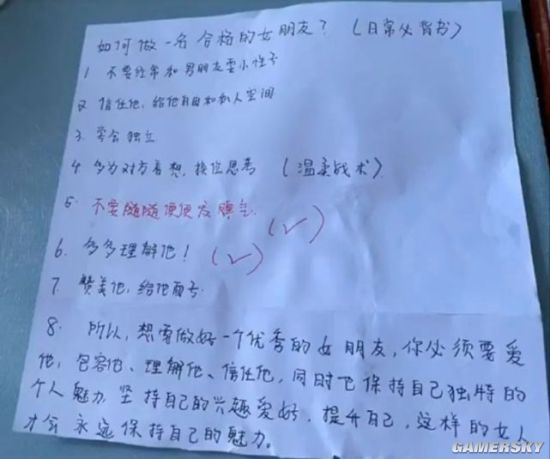 如何做一名合格的女朋友？（日常必背书）
1 不要经常和男朋友耍小性子
2 信任他，给他自由和私人空间
3. 学会独立
4 多为对方着想，换位思考（温柔战术）
5. 不要随随便便发脾气. (√)
6. 多多理解他！(√)
7. 赞美他，给他面子.
8. 所以，想要做好一个优秀的女朋友，你必须要爱
他，包容他、理解他、信任他，同时也保持自己独特的
个人魅力 坚持自己的兴趣爱好，提升自己，这样的女人
才会永远保持自己的魅力。
GAMERSKY